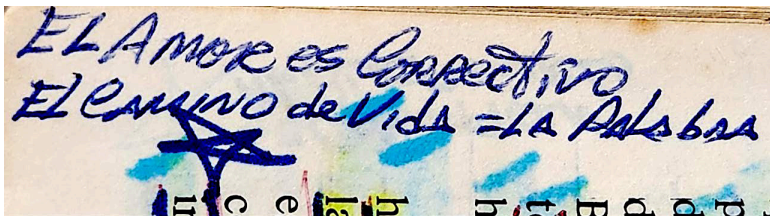 EL AMOR es CORRECTIVO
EL CAMINO de VidA = LA PALAbRA